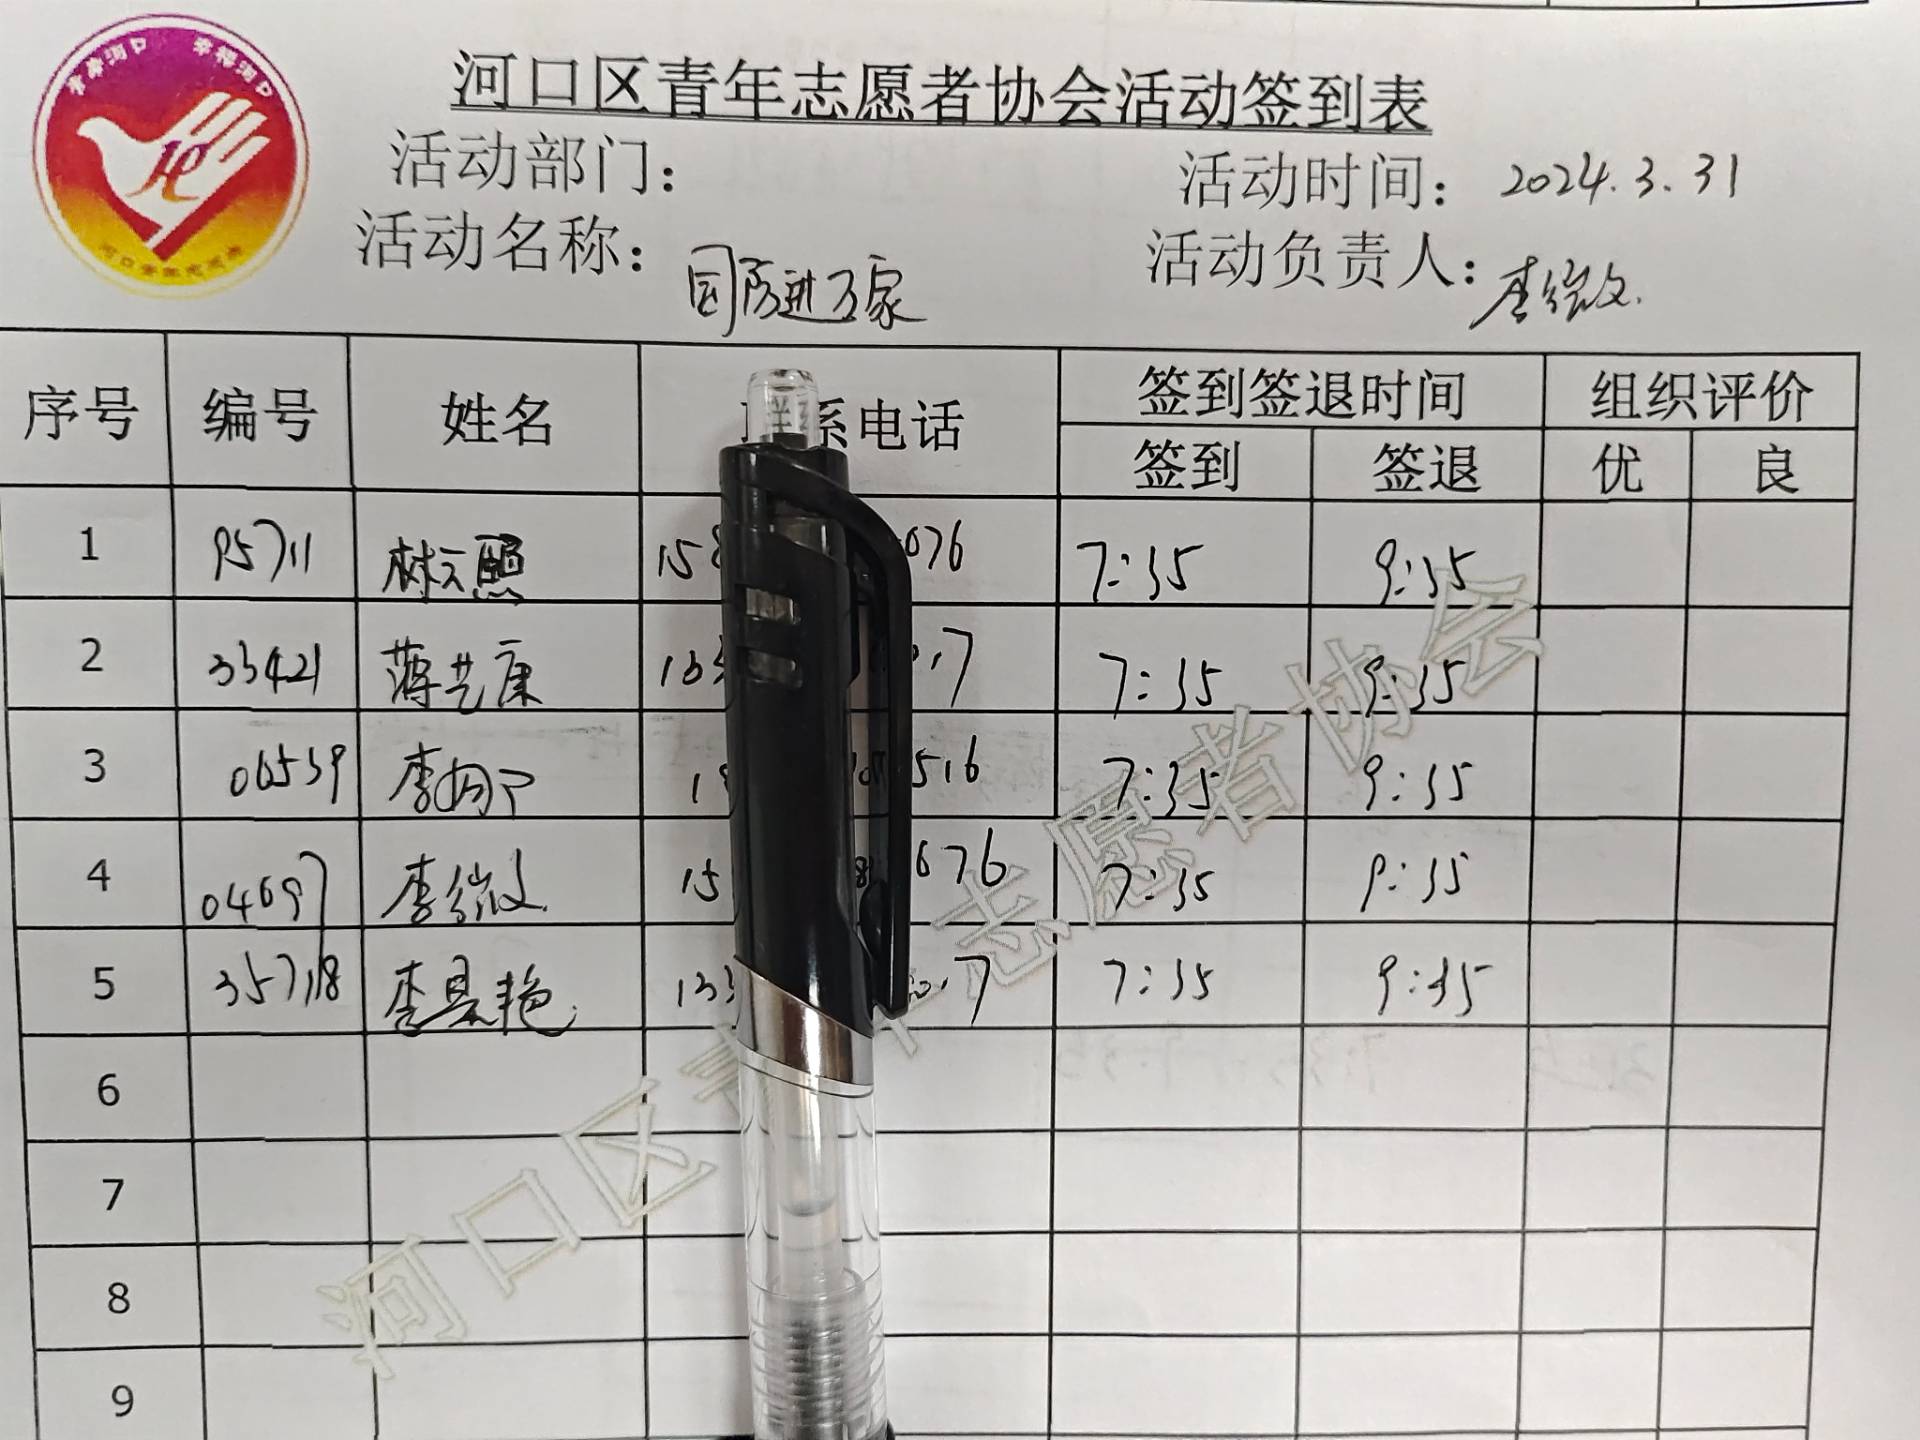 青春河口 幸福河口
河口区青年志愿者协会活动签到表
活动部门：
活动时间：2024.3.31
活动名称：国防进万家
活动负责人：李微文.
序号 编号 姓名 系电话 签到签退时间 组织评价
签到 签退 优 良
1 95711 林云照 15 076 7:35 9:35
2 33421 蒋艺康 133 7 7:35 9:35
3 06539 李 1 516 7:35 9:35
4 04697 李微文. 15 676 7:35 9:35
5 357118 李昙艳 133 7 7:35 9:35
6
7
8
9
河口区青年志愿者协会